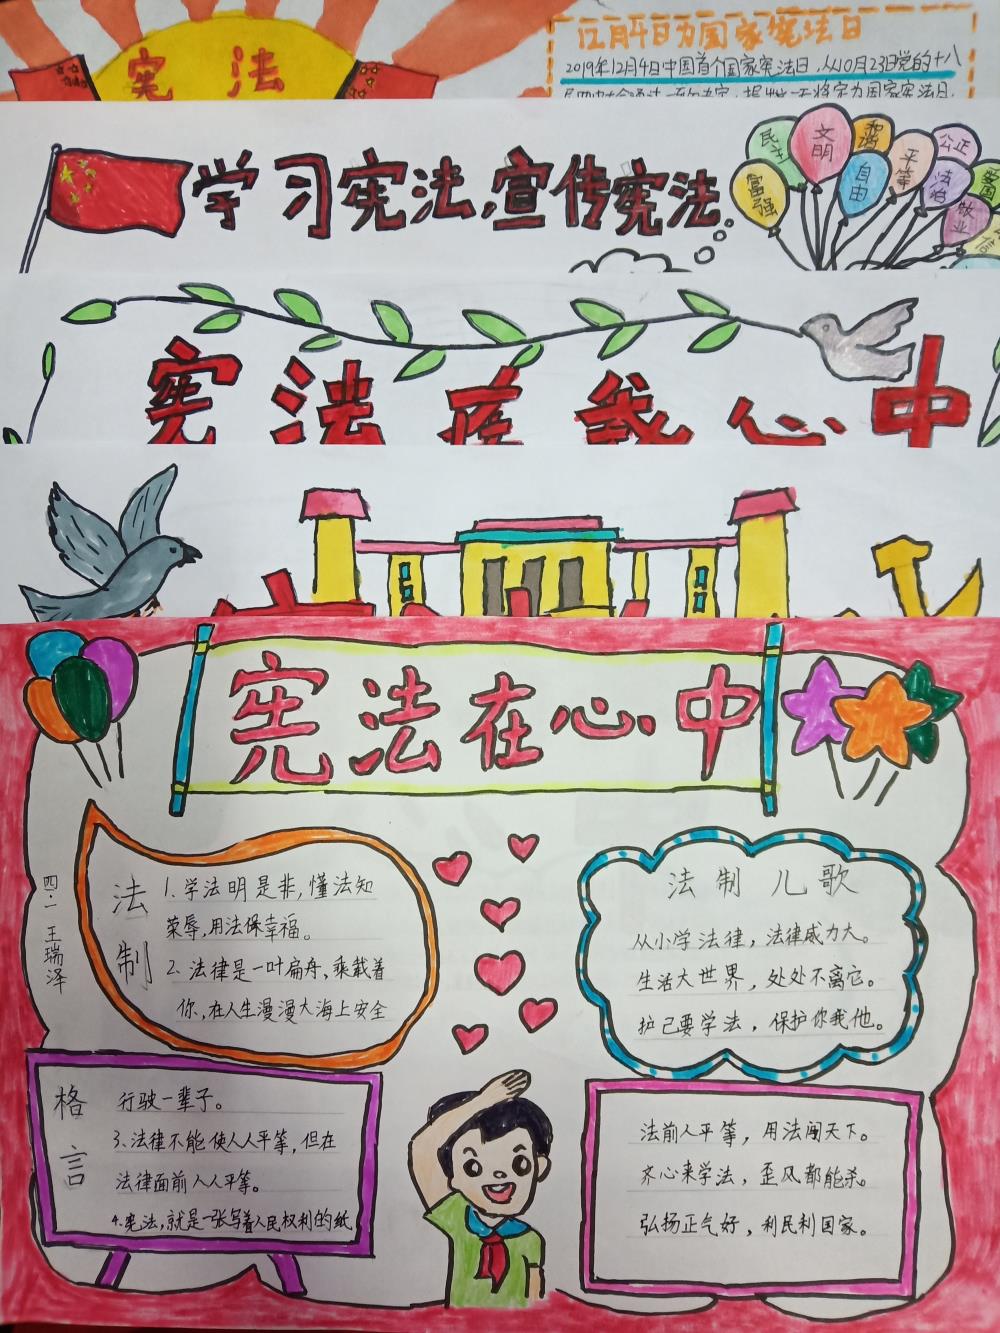 宪法
12月4日为国家宪法日
2019年12月4日中国首个国家宪法日,从10月23日党的十八
学习宪法,宣传宪法。
民主
文明
和谐
平等
公正
富强
自由
法治
爱国
敬业
宪法在我心中
宪法在心中
四.一 王瑞泽
法制
1.学法明是非,懂法知
荣辱,用法保幸福。
2.法律是一叶扁舟,乘载着
你,在人生漫漫大海上安全
格言
行驶一辈子。
3、法律不能使人人平等,但在
法律面前人人平等。
4.宪法,就是一张写着人民权利的纸
法制儿歌
从小学法律,法律威力大。
生活大世界,处处不离它。
护己要学法,保护你我他。
法前人平等,用法闯天下。
齐心来学法,歪风都能杀。
弘扬正气好,利民利国家。